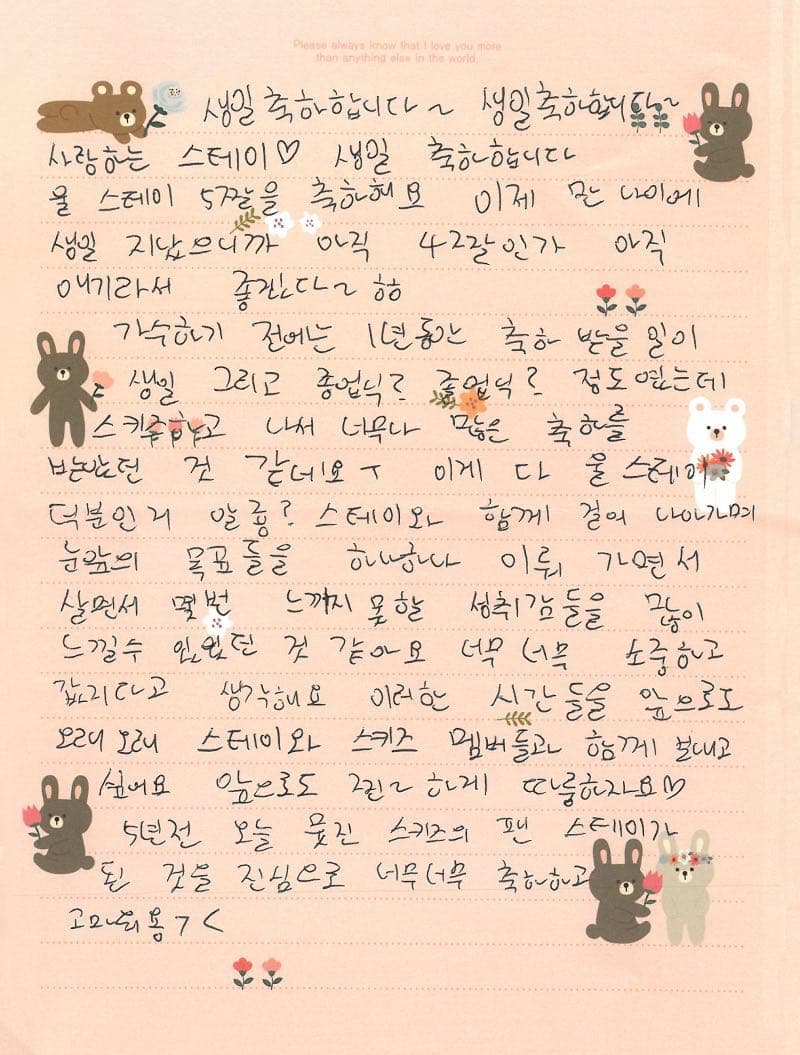 Please always know that I love you more
than anything else in the world.
생일 축하합니다~ 생일축하합니다~
사랑하는 스테이♡ 생일 축하합니다
울 스테이 5짤을 축하해요 이제 만 나이에
생일 지났으니까 아직 4짤인가 아직
애기라서 좋겠다~ 힝
가수하기 전에는 1년동안 축하 받을 일이
생일 그리고 졸업식? 종업식? 정도였는데
스키즈하고 나서 너무나 많은 축하를
받았던 것 같네요ㅜ 이게 다 울 스테이
덕분인거 알죵? 스테이와 함께 걸어 나아가며
눈앞의 목표들을 하나하나 이뤄 가면서
살면서 몇번 느끼지 못할 성취감들을 많이
느낄수 있었던 것 같아요 너무 너무 소중하고
값지다고 생각해요 이러한 시간들을 앞으로도
오래오래 스테이와 스키즈 멤버들과 함께 보내고
싶어요 앞으로도 찐~하게 따룽하자요♡
5년전 오늘 뭇진 스키즈의 팬 스테이가
된 것을 진심으로 너무너무 축하하고
고마워용ㄱ<